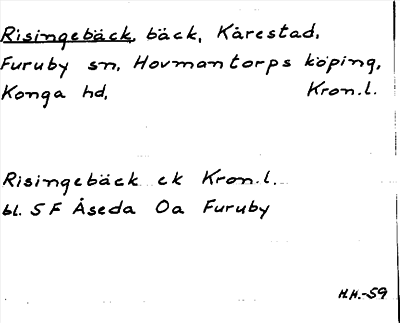 Risingebäck, bäck, Kårestad,
Furuby sn, Hovmantorps köping,
Konga hd, Kron.l.
Risingebäck ek Kron.l.
bl. 5F Åseda Oa Furuby
H.H.-59